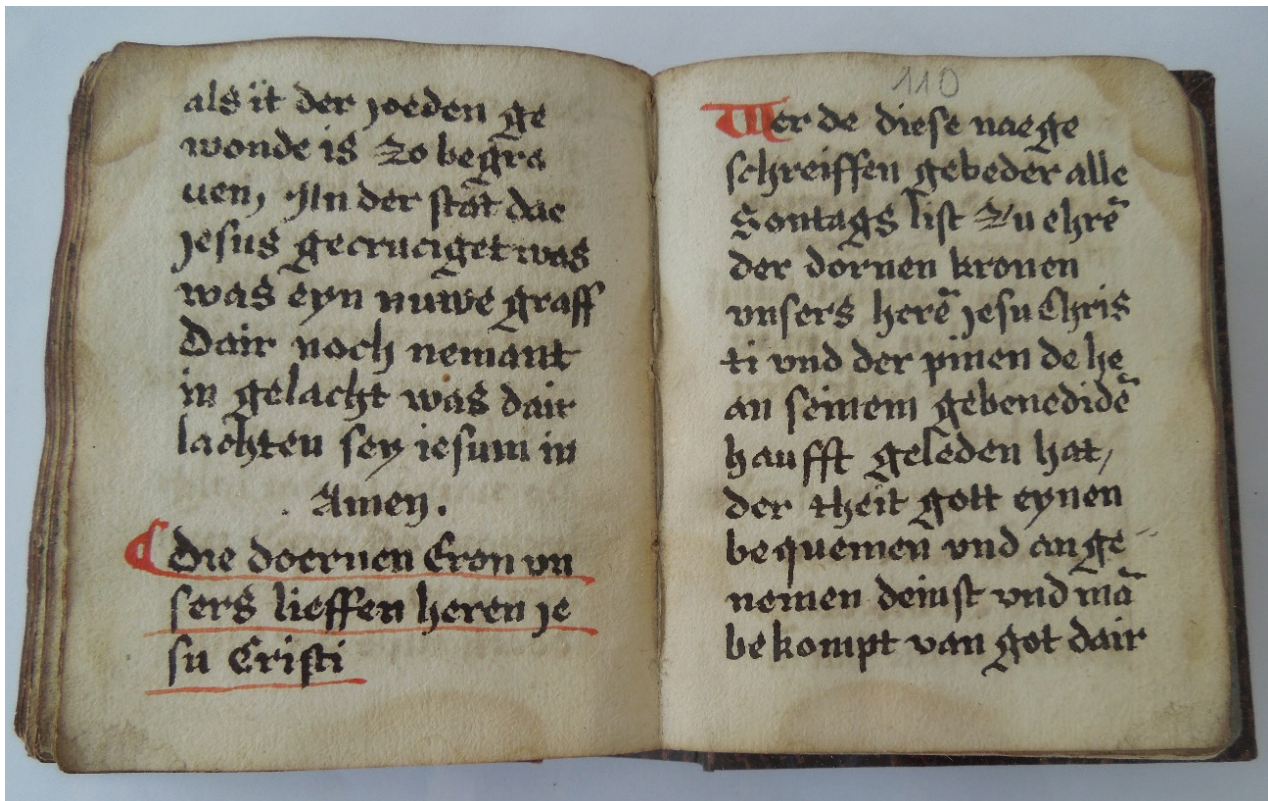 als it der joeden ge
wonde is zo begra
uen, In der stat dae
jesus gecruciget was
was eyn nuwe graff
Dair noch nemant
in gelacht was dair
lachten sey iesum in
. Amen.
Die doernen Cron vn
sers lieffen heren je
su Cristi
110
Wer de diese naege
schreiffen gebeder alle
Sontags list zu ehrē
der dornen kronen
vnsers herē jesu Chris
ti vnd der pinen de he
an seinem gebenedidē
haufft geleden hat,
der theit gott eynen
bequemen vnd ange
nemen deinst vnd mā
bekompt van got dair